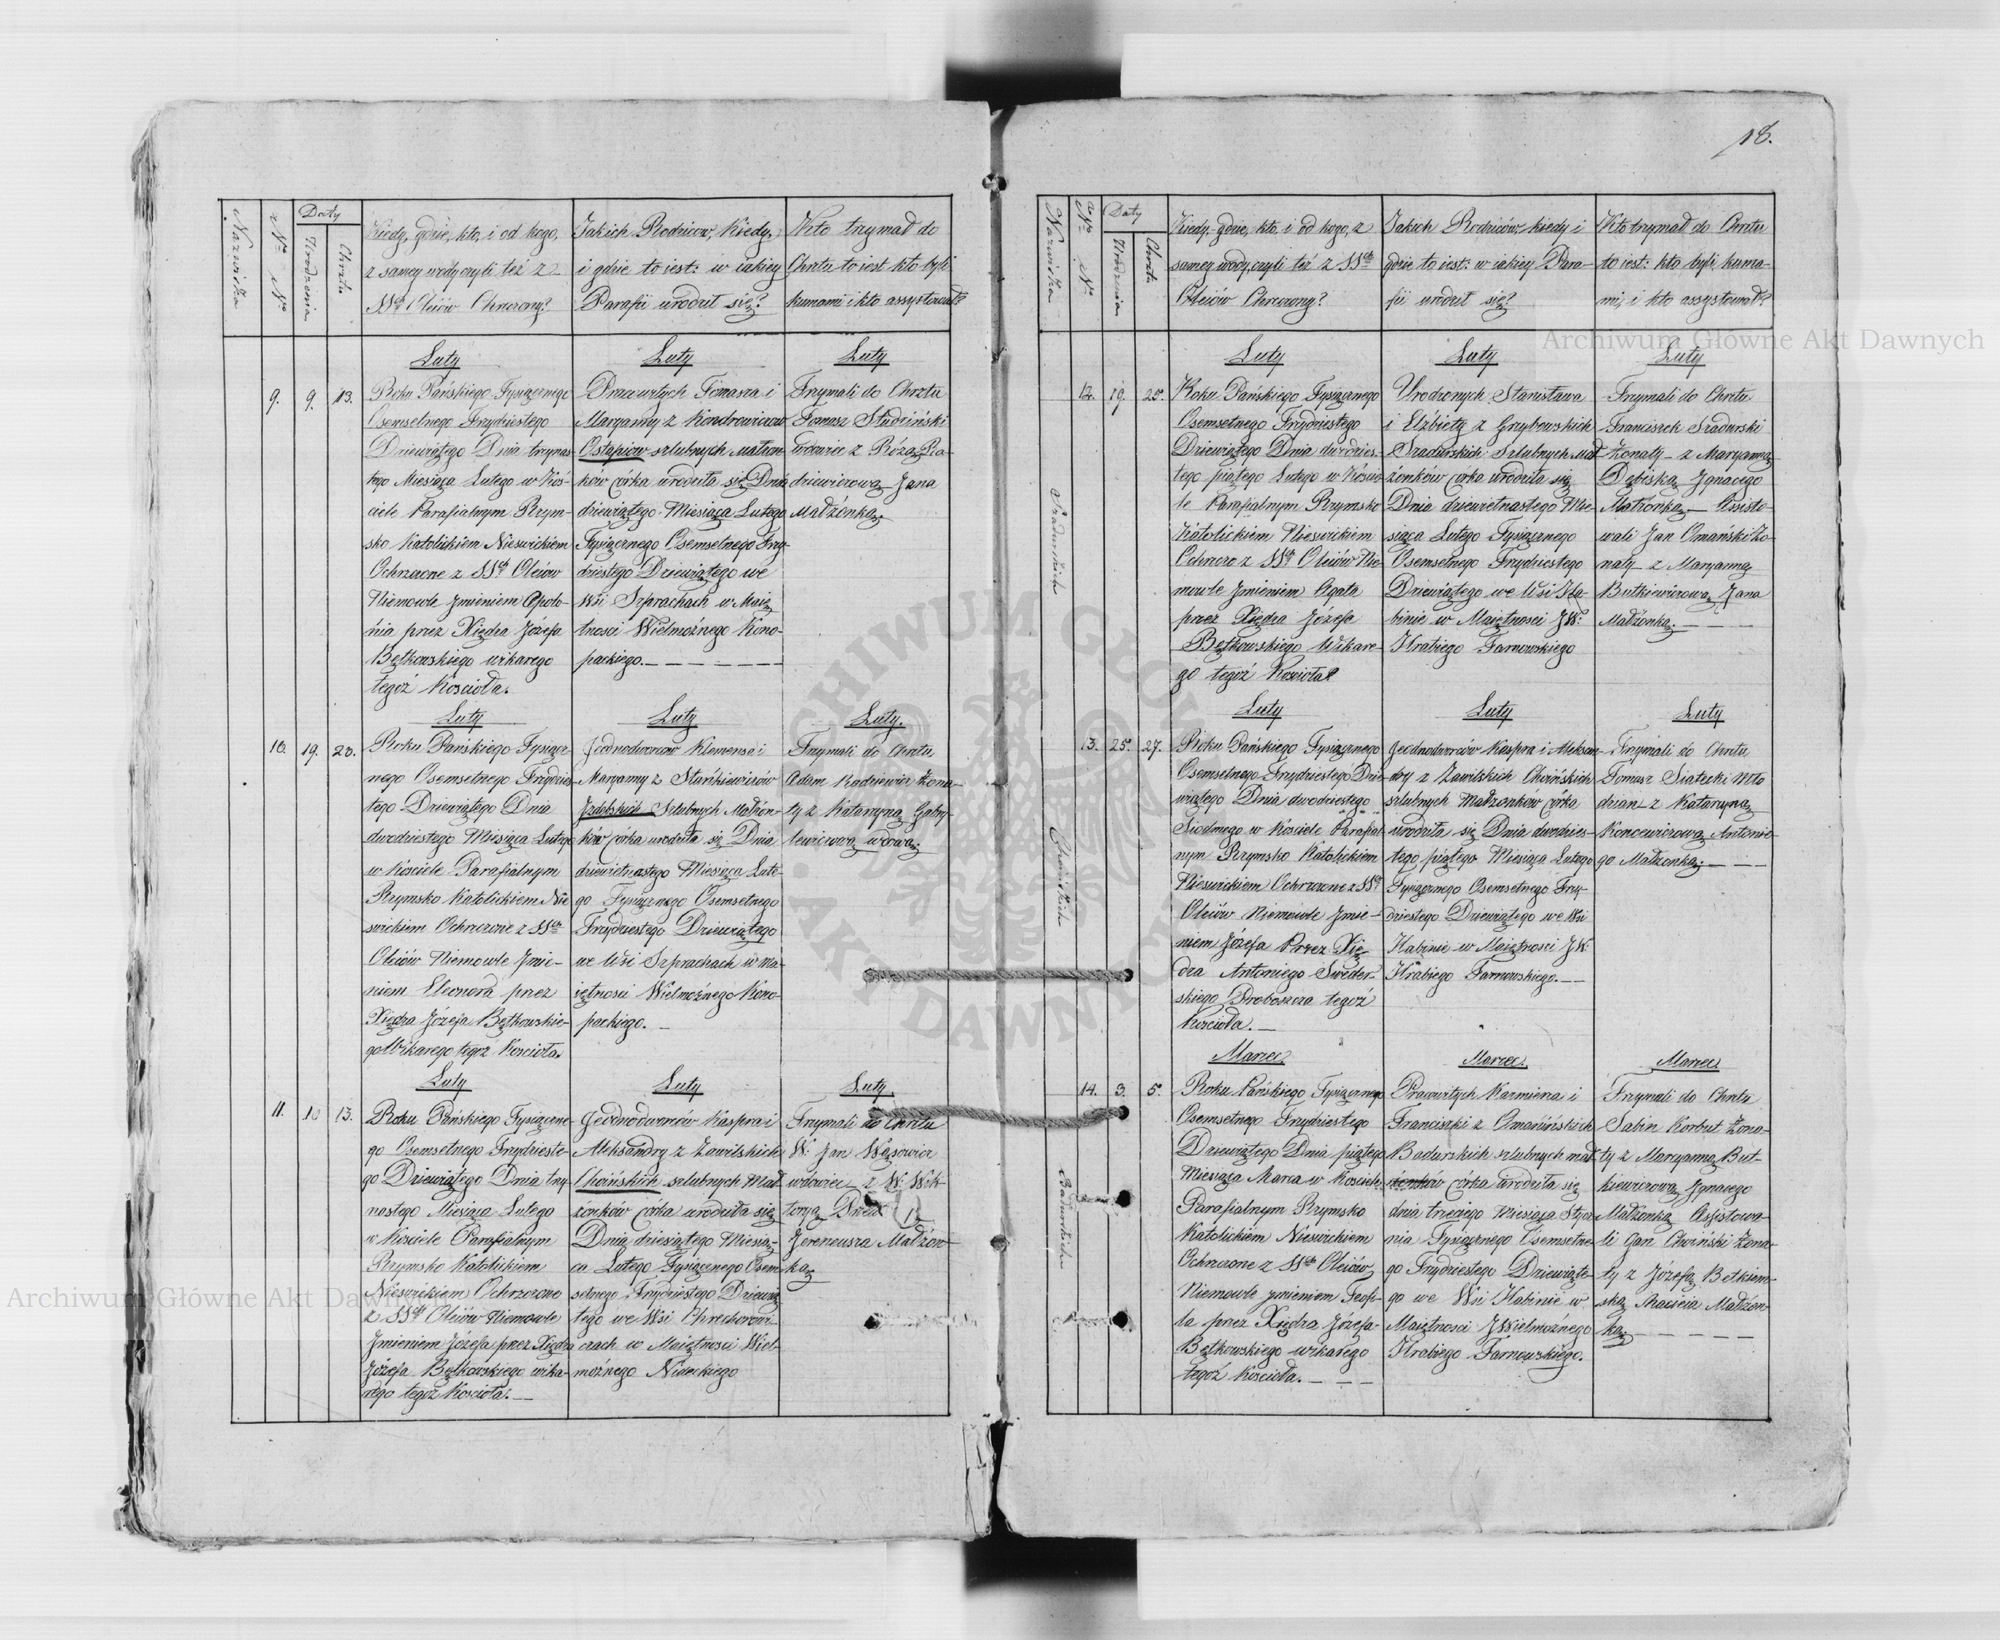 18.
Nazwiska
Nro Nro
Daty
Urodzenia
Chrztu
Kiedy, gdzie, kto, i od kogo,
z samey wody czyli też z
SSch Oleiów Chrzczony?
Jakich Rodziców, Kiedy,
i gdzie to iest: w iakiey
Parafii urodził się?
Kto trzymał do
Chrztu to iest kto byli
kumami i kto assystował?
Luty
9.
9.
13.
Roku Pańskiego Tysiącznego
Osemsetnego Trzydziestego
Dziewiątego Dnia trzynas-
tego Miesiąca Lutego w Koś-
ciele Parafialnym Rzym-
sko Katolickiem Nieswickiem
Ochrzczone z SSch Oleiów
Niemowle Jmieniem Apolo-
nia przez Xiędza Józefa
Bętkowskiego wikarego
tegoż Kościoła.
Luty
Prac­owitych Tomasza i
Maryanny z Kondrowiczow
Ostapiów szlubnych małżon-
ków córka urodziła się Dnia
dziewiątego Miesiąca Lutego
Tysiącznego Osemsetnego Trzy-
dziestego Dziewiątego we
Wśi Szprachach w Maię-
tnosci Wielmożnego Kono-
packiego.
Luty
Trzymali do Chrztu
Tomasz Studziński
wdowiec z Różą Ra-
dziewiczową Jana
Małżonką
Luty
10.
19.
20.
Roku Pańskiego Tysiącz-
nego Osemsetnego Trzydzies-
tego Dziewiątego Dnia
dwudziestego Miesiąca Lutego
w Kościele Parafialnym
Rzymsko Katolickiem Nie-
swickiem Ochrzczone z SSch
Oleiów Niemowle Jmie-
niem Eleonora przez
Xiędza Józefa Bętkowskie-
go Wikarego tegoż Kościoła.
Luty
Jednodworców Klemensa i
Maryanny z Stankiewiczów
Jzdebskich Szlubnych Małżon-
ków córka urodziła się Dnia
dziewietnastego Miesiąca Lute-
go Tysiącznego Osemsetnego
Trzydziestego Dziewiątego
we Wśi Szprachach w Ma-
iętnosci Wielmożnego Kono-
packiego.
Luty.
Trzymali do Chrztu
Adam Radziewicz Żona-
ty z Katarzyną Gabry-
lewiczową wdową.
Luty
11.
10
13.
Roku Pańskiego Tysiączne-
go Osemsetnego Trzydzieste-
go Dziewiątego Dnia trzy-
nastego Miesiąca Lutego
w Kościele Parafialnym
Rzymsko Katolickiem
Nieswickiem Ochrzczone
z SSch Oleiów Niemowle
Jmieniem Józefa przez Xiędza
Józefa Bętkowskiego wika-
rego tegoż Kościoła.
Luty
Jednodworców Kaspra i
Aleksandry z Zawilskich
Choińskich szlubnych Mał-
żonków córka urodziła się
Dnia dziesiątego Miesią-
ca Lutego Tysiącznego Osem-
setnego Trzydziestego Dziewią-
tego we Wśi Chreckorowi-
czach w Maiętnosci Wiel-
możnego
Luty.
Trzymali do Chrztu
W: Jan Wąsowicz
wdowiec z W: Wik-
toryą
Jereneusza Małżon-
ką
Nazwiska
Nro Nro
Daty
Urodzenia
Chrztu
Kiedy, gdzie, kto, i od kogo, z
samey wody, czyli też z SSch
Oleiów Chrzczony?
Jakich Rodziców, kiedy i
gdzie to iest: w iakiey Para-
fii urodził się?
Kto trzymał do Chrztu
to iest: kto byli kuma-
mi, i kto assystował?
Luty
Szadurskich
12.
19.
25.
Roku Pańskiego Tysiącznego
Osemsetnego Trzydziestego
Dziewiątego Dnia dwudzies-
tego piątego Lutego w Koście-
le Parafialnym Rzymsko
Katolickiem Nieswickiem
Ochrzczo z SSch Oleiów Nie-
mowle Jmieniem Agata
przez Xiędza Józefa
Bętkowskiego Wikare-
go tegoż Kościoła
Luty
Urodzonych Stanisława
i Elżbiety z Grzybowskich
Szadurskich Szlubnych Mał-
żonków córka urodziła się
Dnia dziewietnastego Mie-
siąca Lutego Tysiącznego
Osemsetnego Trzydziestego
Dziewiątego we Wśi Ha-
binie w Maiętnosci JW:
Hrabiego Tarnowskiego
Luty
Trzymali do Chrztu
Franciszek Szadurski
Żonaty z Maryanną
Dębiską Jgnacego
Małżonką Assisto-
wali Jan Omański Żo-
naty z Maryanną
Butkiewiczową Jana
Małżonką
Luty
Choińskich
13.
25.
27.
Roku Pańskiego Tysiącznego
Osemsetnego Trzydziestego Dzie-
wiątego Dnia dwudziestego
Siodmego w Kościele Parafial-
nym Rzymsko Katolickiem
Nieswickiem Ochrzczone z SSch
Oleiów Niemowle Jmie-
niem Józefa Przez Xię-
dza Antoniego Sweder-
skiego Proboszcza tegoż
Kościoła.
Luty
Jednodworców Kaspra i Aleksan-
dry z Zawilskich Choińskich
szlubnych Małżonków córka
urodziła się Dnia dwudzies-
tego piątego Miesiąca Lutego
Tysiącznego Osemsetnego Trzy-
dziestego Dziewiątego we Wśi
Habinie w Maiętnosci JW:
Hrabiego Tarnowskiego.
Luty
Trzymali do Chrztu
Tomasz Siatecki Mło
dzian z Katarzyną
Koncewiczową Antonie-
go Małżonką.
Marzec.
Badurskich
14.
3.
5.
Roku Pańskiego Tysiącznego
Osemsetnego Trzydziestego
Dziewiątego Dnia piątego
Miesiąca Marca w Kościele
Parafialnym Rzymsko
Katolickiem Nieswickiem
Ochrzczone z SSch Oleiów
Niemowle jmieniem Teofi-
la przez Xiędza Józefa
Bętkowskiego wikarego
tegoż Kościoła.
Marzec.
Pracowitych Kazmierza i
Franciszki z Omańińskich
Badurskich szlubnych mał-
żonków córka urodziła się
dnia trzeciego Miesiąca Stycz-
nia Tysiącznego Osemsetne-
go Trzydziestego Dziewiąte-
go we Wśi Habinie w
Maiętnosci JWielmożnego
Hrabiego Tarnowskiego.
Marzec
Trzymali do Chrztu
Sabin Korbut Żona-
ty z Maryanną But-
kiewiczową Jgnacego
Małżonką Assistowa-
li Jan Choiński Żona-
ty z Józefą Betkiem-
ską Macieia Małżon-
ką
Archiwum Główne Akt Dawnych
Archiwum Główne Akt Dawnych
ARCHIWUM GŁÓWNE AKT DAWNYCH